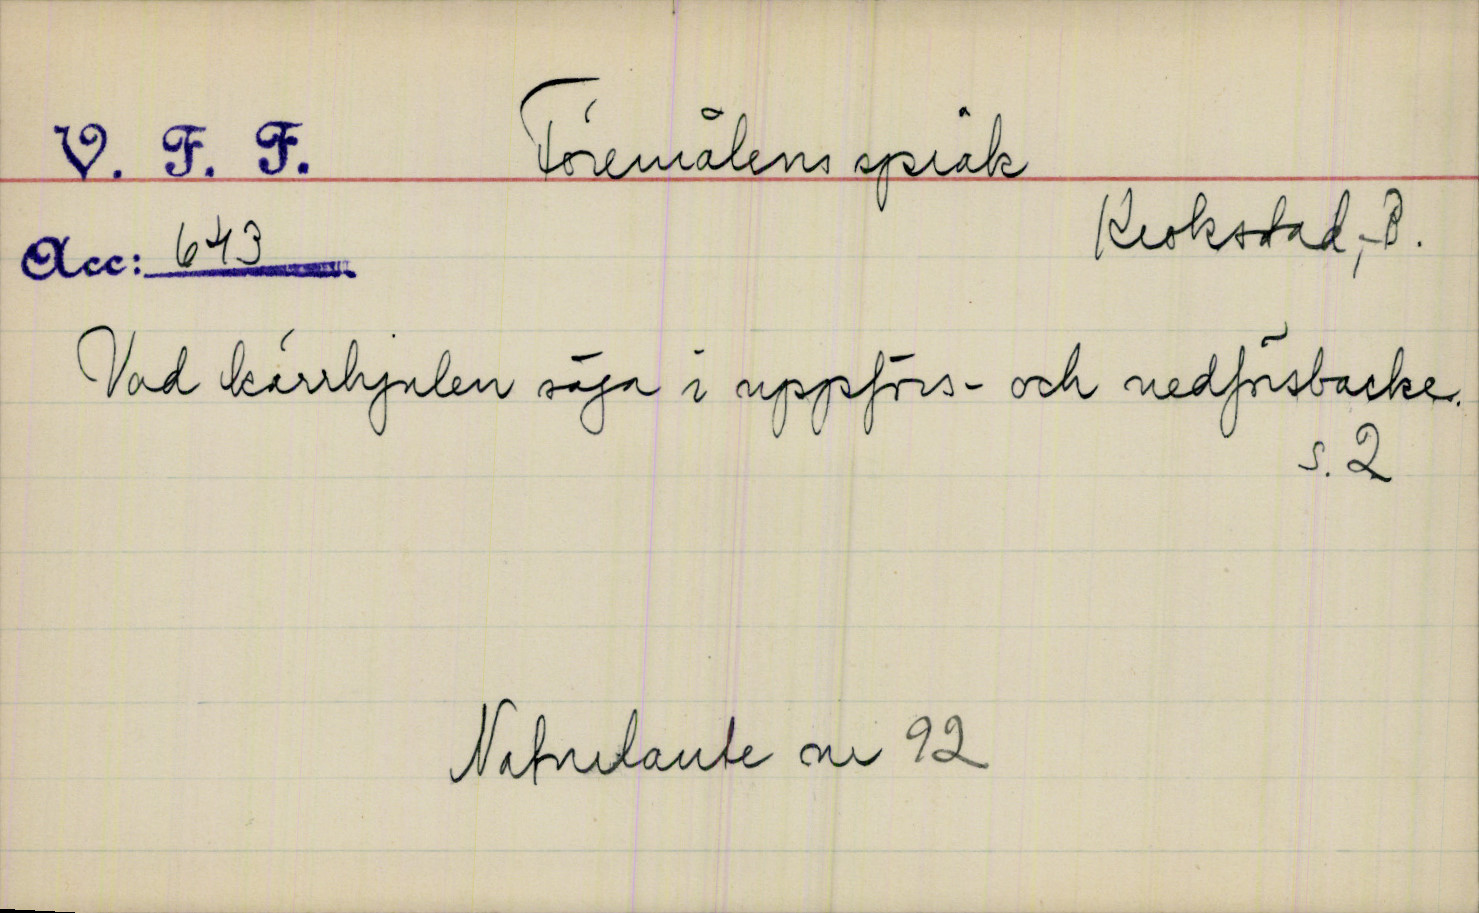 V. F. F.
Föremålens språk
Krokstad, B.
Acc: 643
Vad kärrhjulen säga i uppförs- och nedförsbacke.
s. 2
Naturlaute nr 92